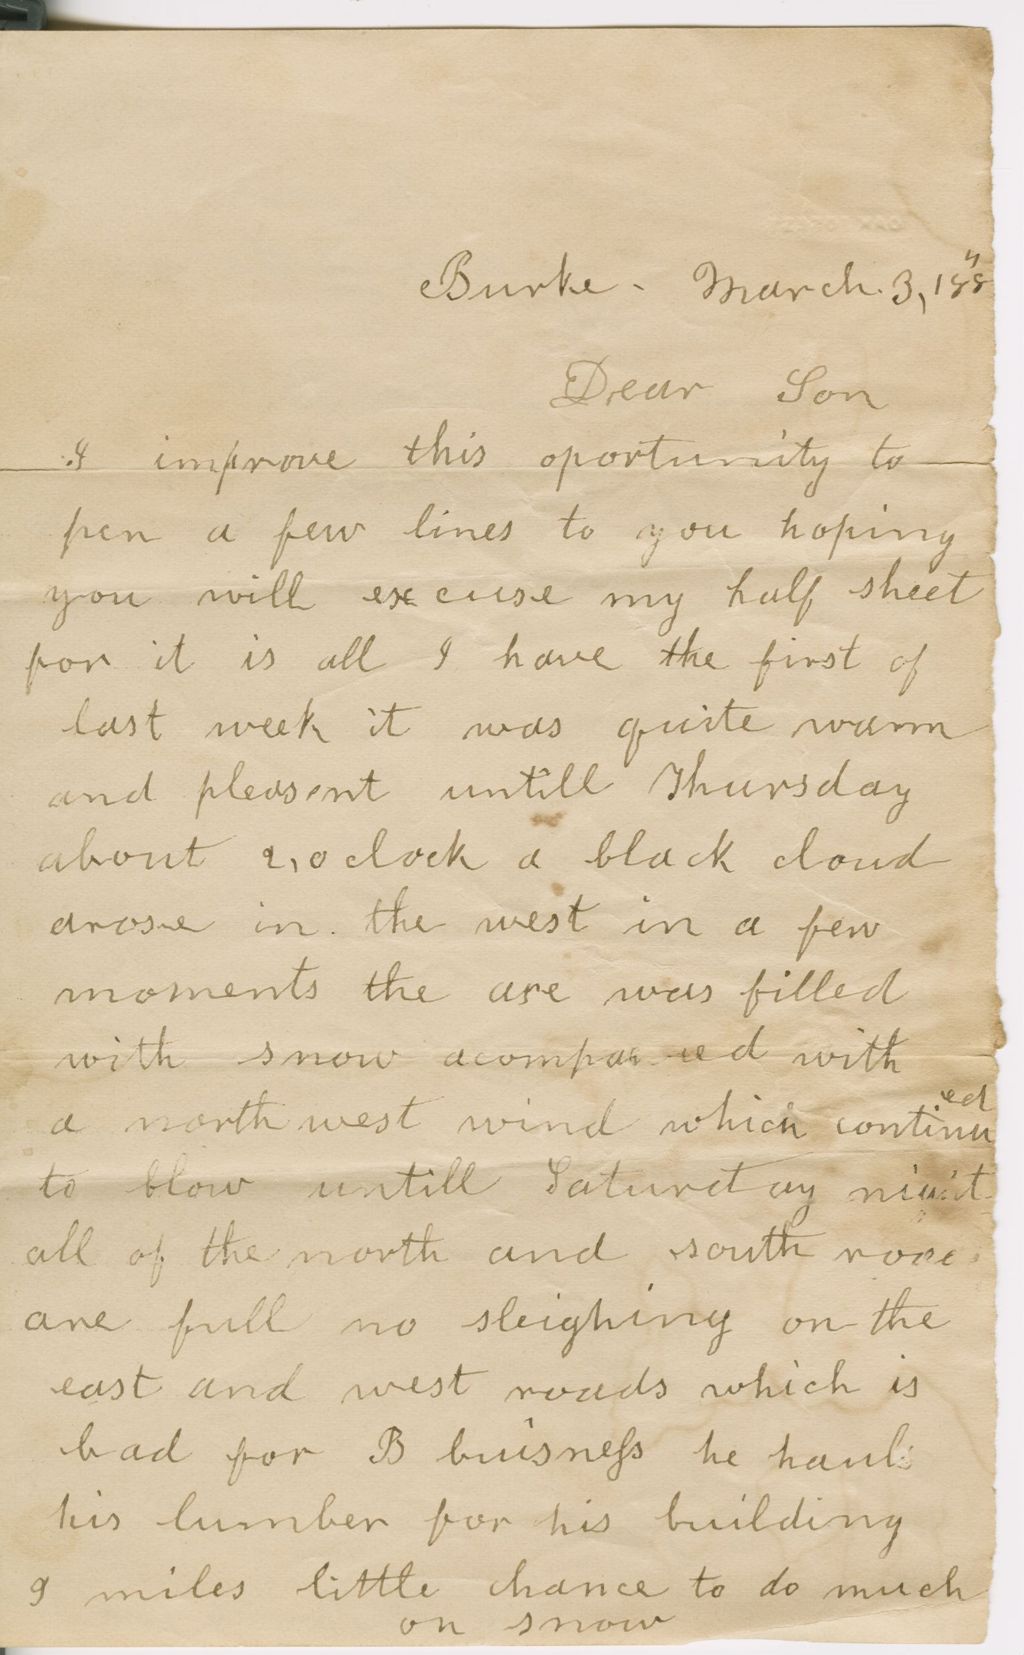 Burke - March 3, 188
Dear Son
I improve this oportunity to
pen a few lines to you hoping
you will excuse my half sheet
for it is all I have the first of
last week it was quite warm
and pleasent untill Thursday
about 2, o clock a black cloud
arose in the west in a few
moments the are was filled
with snow acompanied with
a north west wind which continued
to blow untill Saturday night
all of the north and south roads
are full no sleighing on the
east and west roads which is
bad for B buisness he hauls
his lumber for his building
9 miles little chance to do much
on snow